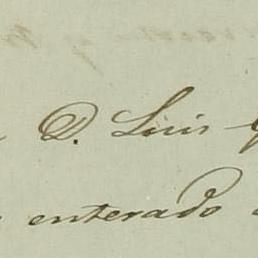 D. Luis
enterado